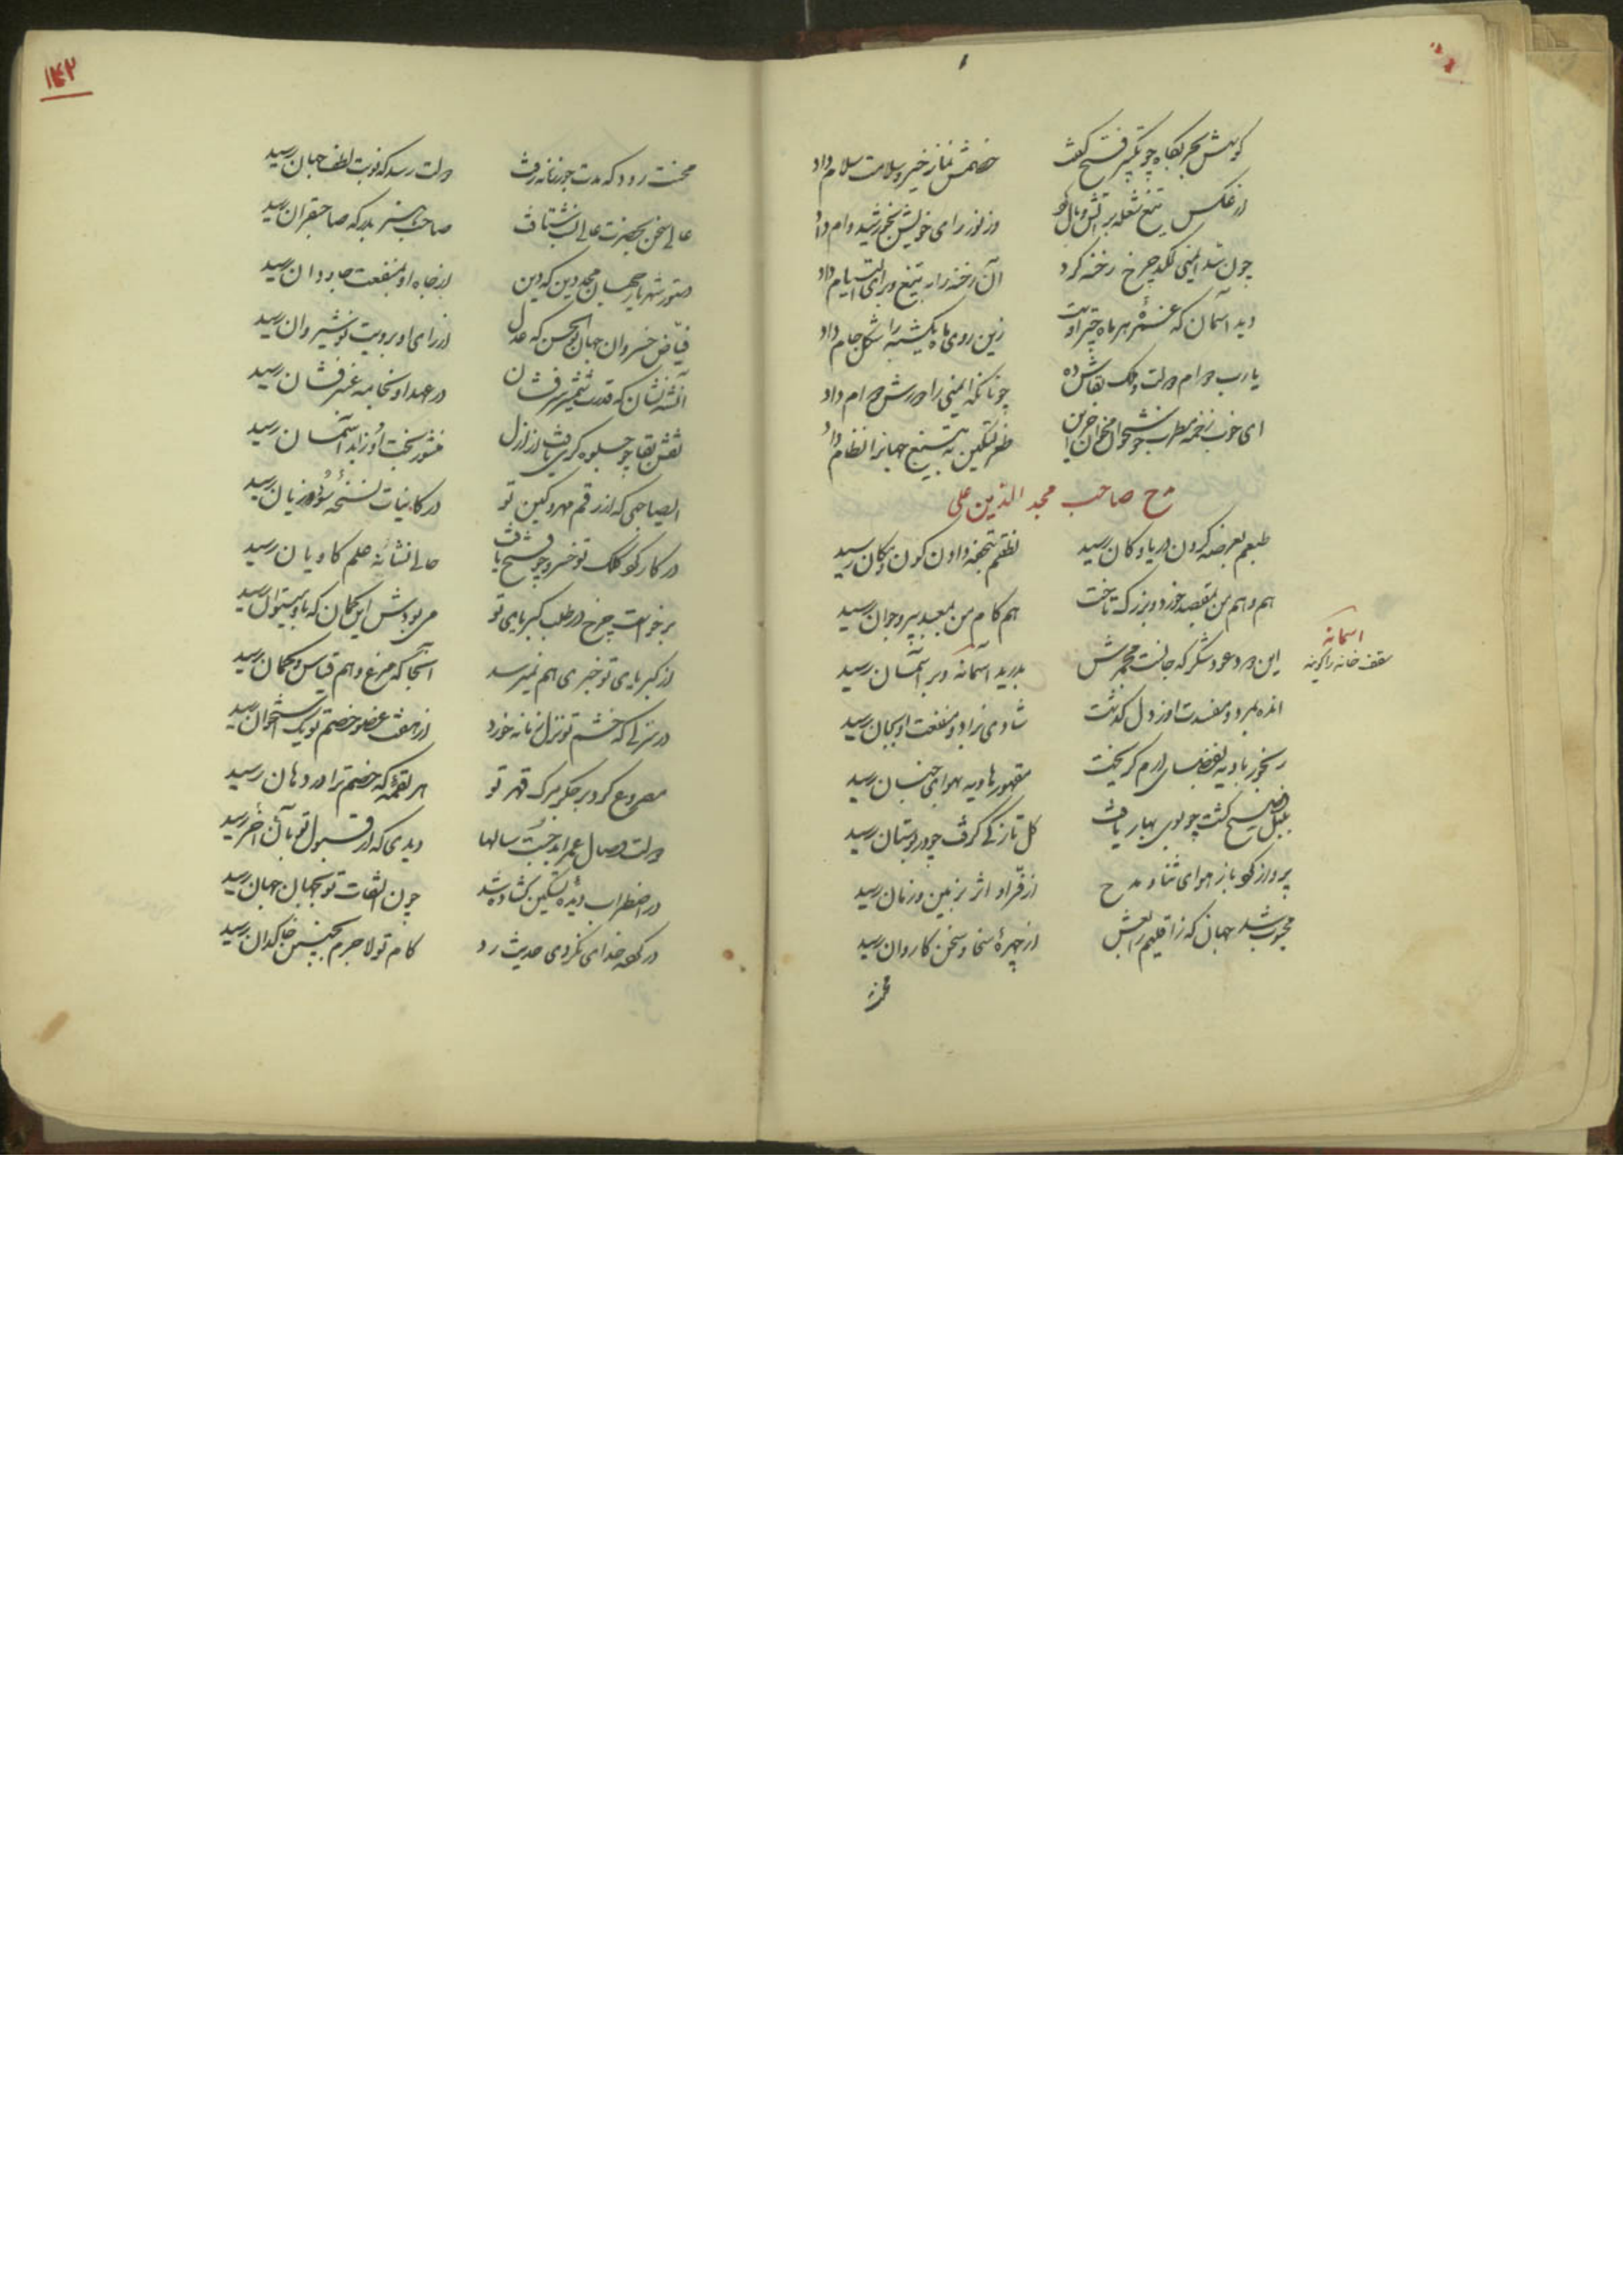 کوسش بحربگاه چو تکبیر فتح گفت خصمش نماز خیر و سلامت سلام داد
از عکس تیغ شعله بر آتش وبال وز نور رای خویش بخورشید وام داد
چون شد ایمنی لگد چرخ رخنه کرد آن رخنه را به تیغ و برای التیام داد
دید آسمان که غره هر ماه چتر اوست زین روی ماه یکشبه را شکل جام داد
یارب دوام دولت و ملک بقاش ده چونانکه ایمنی را دورش دوام داد
ای خوب زخمه مطرب خوشخوان بخوان ظفر تسکین تیغ جهانرا نظام داد
مدح صاحب مجد الدین علی
طبعم بعرضه کردن دریا و کان رسید نظمم بتحفه دادن کون و مکان رسید
هم وهم من بمقصد خرد و بزرگ تاخت هم کام من بمعبد پیر و جوان رسید
این درد عود شکر که جانست مجمرش بدرید آسمانه و بر آسمان رسید
اسمانه
سقف خانه را گویند
انده بمرد و مفسدت او ز دل گذشت شادی بزاد و منفعت او بجان رسید
رنجور بادیه بفضای ارم گریخت مقهور هاویه بهوای جنان رسید
بلبل فصیح گشت چو بوی بهار یافت گل تازگی گرفت چو در بوستان رسید
پرواز کرد باز هوای ثنا و مدح از فر او اثر بزمین و زمان رسید
محبوب شد جهان که ز اقلیم رابعش از چهره سخا و سخن کاروان رسید
محنت
۱۴۲
محنت رود که مدت جور زمانه رفت دولت رسد که نوبت لطف جهان رسید
عالی سخن بحضرت عالی نسب شتافت صاحب هنر بدرگه صاحبقران رسید
دستور شهریار جهان مجد دین که دین از جاه او بمنفعت جاودان رسید
فیاض خسروان جهان بوالحسن که عدل از رای او برویت نوشیروان رسید
آتش نشان که قدرت شمشیر سرفشان در عهد او بخامه عنبر فشان رسید
نقش بقا چو جلوه گری یافت از ازل منشور بخت او ز ابد آسمان رسید
ای صاحبی که از رقم مهر و کین تو در کاینات نسخه سود و زیان رسید
در کار کرد کلک تو خسرو چو فتح یافت حالی نشانه علم کاویان رسید
برخواست چرخ در طلب کبریای تو می بودش این گمان که باو میتوان رسید
از کبریای تو خبری هم نمیرسد آنجا که مرغ وهم قیاس و گمان رسید
در منزلی که خشم تو نزل زمانه خورد از هفت عضو خصم تو یک استخوان رسید
مصروع کرد بر جگر مرگ قهر تو هر لقمه که خصم ترا در دهان رسید
دولت وصال عمر ابد جست سالها دیدی که از قبول تو با آن آخر رسید
در اضطراب دیده تسکین گشاده شد چون التفات تو بجهان جهان رسید
در کعبه خدای نکردی حدیث رد کام تو لاجرم بچنین خاکدان رسید